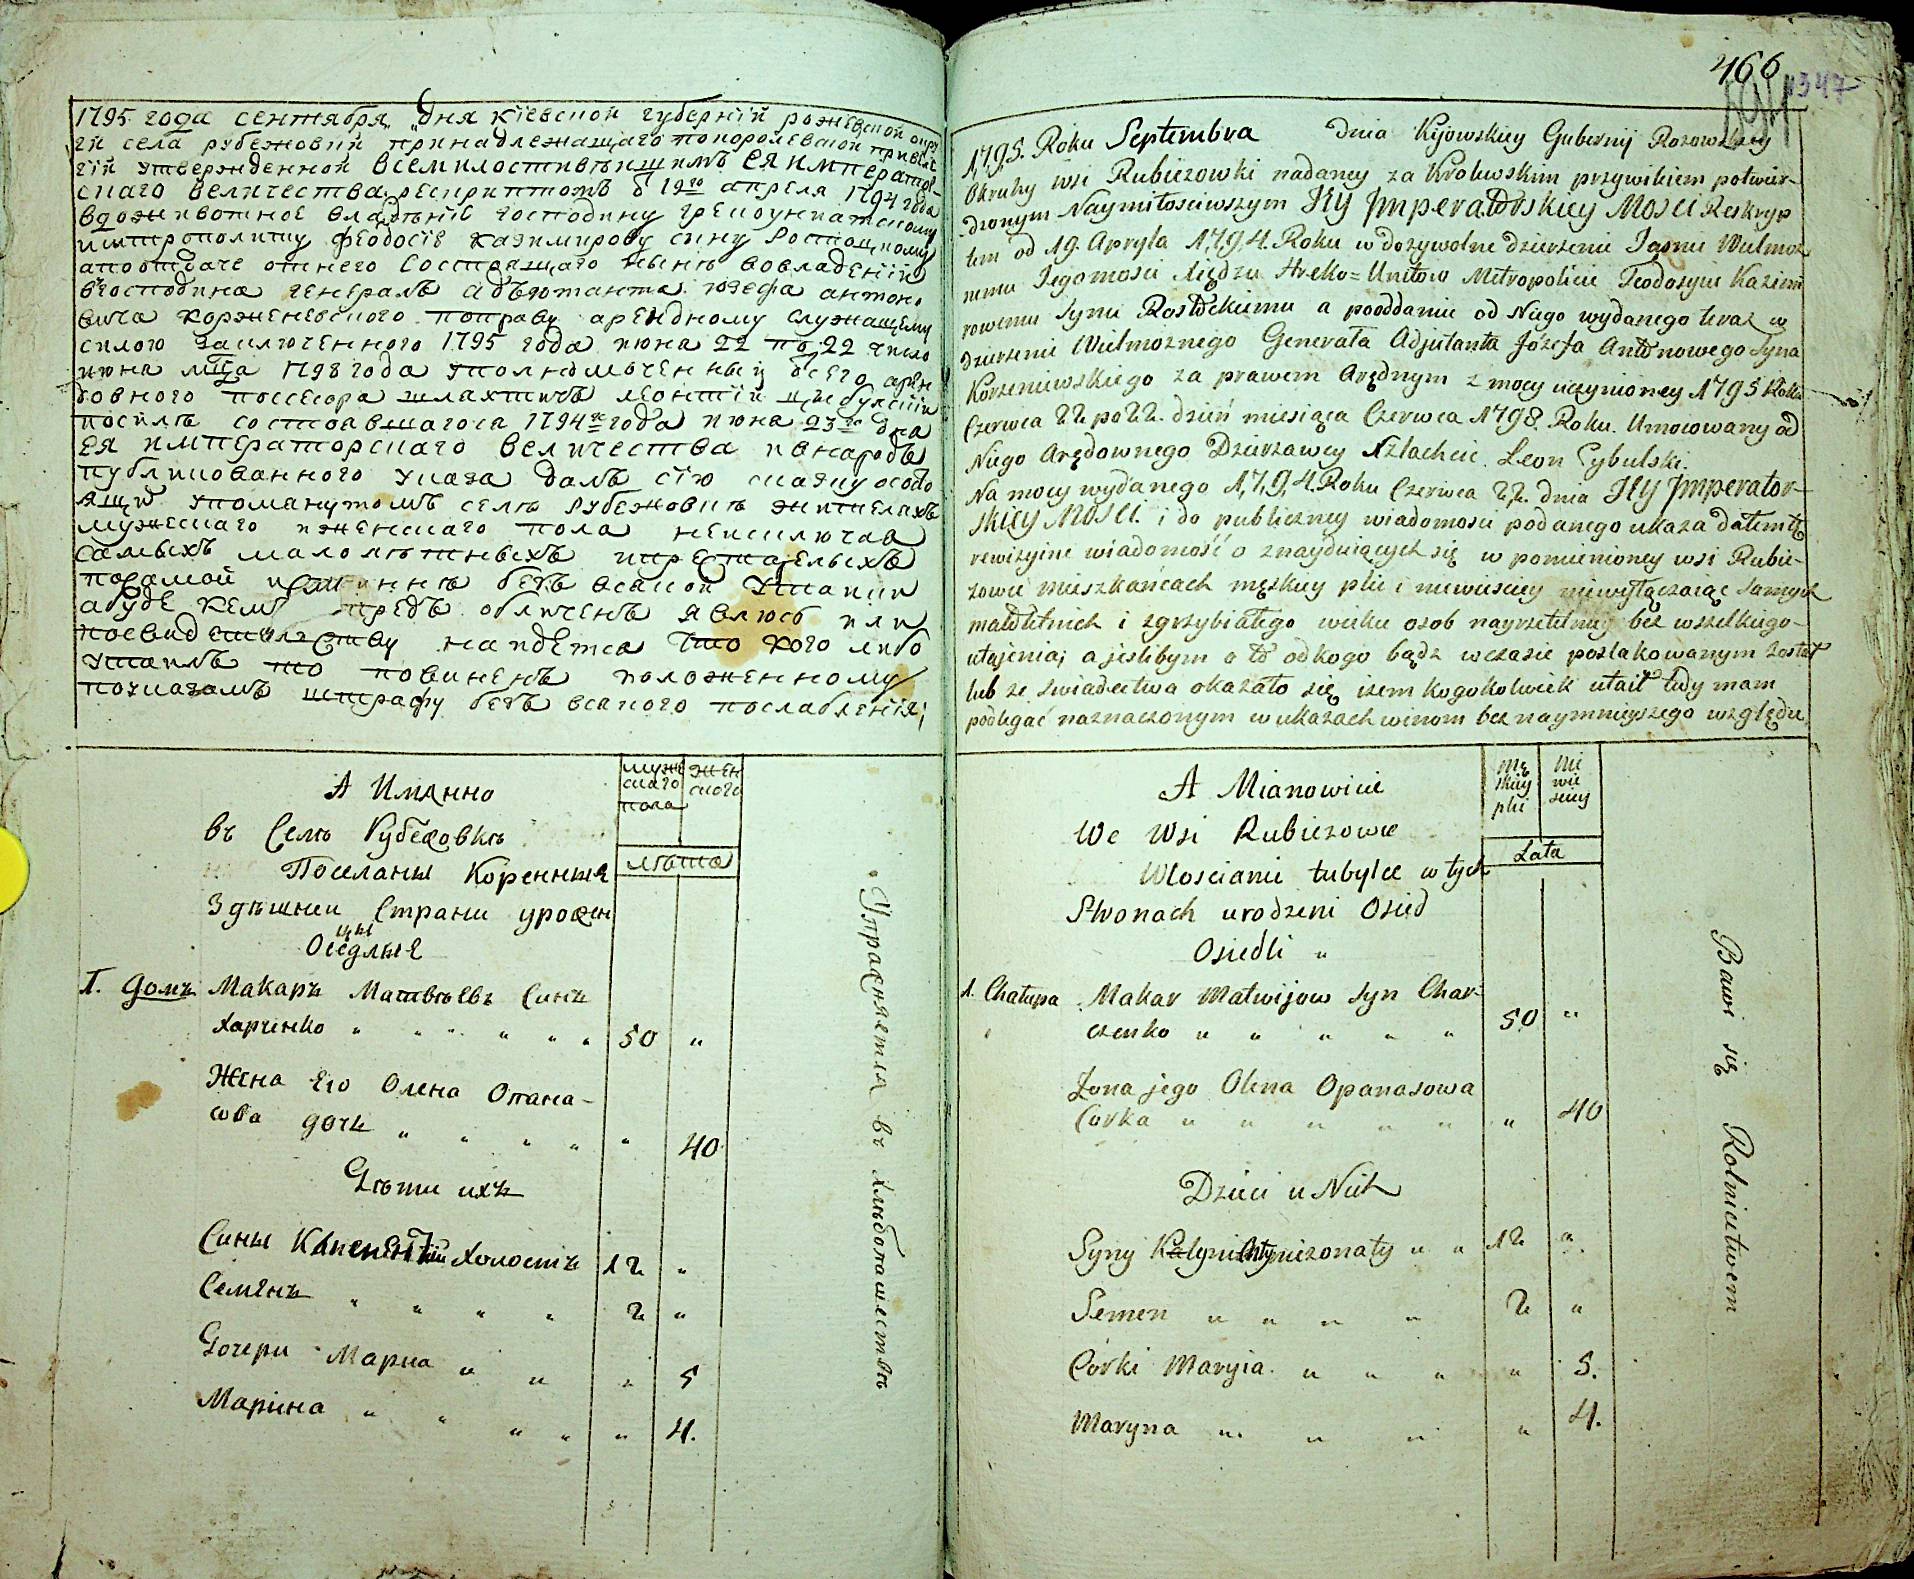 1795 года сентября „ „ дня кїевской губернїй рожевской окру
ги села рубежовки принадлежащаго по королевской привилѣ
гїй утвержденной всемилостивѣищимъ ея император
скаго величества рескриптомъ 19го апреля 1794 года
вдоживотное владѣнїе господину грекоунитскому
митрополиту феодосїю казимирову сину Ростоцкому
апоотдаче отнего состоящаго нынѣ вовладенїй
господина генералъ адъютанта юзефа антоно
вича корженевского поправу арендному служащему
силою заключенного 1795 года июна 22 по 22 число
июна мца 1798 года уполномоченный от его арен
довного поссесора шляхтичъ леонтїй цибулскїй
посилѣ состоавшагося 1794го года июна 23го дня
ея императорскаго величества и внародъ
публикованного указа далъ сїю сказку особо
ящи упоманутомъ селѣ рубежовкѣ жителахъ
мужескаго иженскаго пола неисключая
самыхъ малолѣтныхъ ипрестарелыхъ
посамой истиннѣ безъ всакои утаики
абуде кемъ предъ обличенъ явлюсь или
посвидетилству найдется что кого либо
утаилъ то повиненъ положенному
поуказамъ штрафу безъ всакого послабленїя;
муже
скаго
пола
жен
ского
А Имянно
въ Селѣ Рубежовкѣ
лѣта
Поселаны Коренныя
Здѣшнеи Страни урожен
цы
Оседлыя
I. Домъ Макаръ Матвѣевъ Синъ
Харченко „ „ „ „ „ „ 50 „
Жена Его Олена Опана-
сова дочь „ „ „ „ „ 40
Дѣти ихъ
Сины Холостъ 12 „
Семенъ „ „ „ „ 2 „
Дочери Мариа „ „ „ 5
Марина „ „ „ „ „ 4.
Упражняется въ хлѣбопашествѣ
466
1347
1795. Roku Septembra Dnia Kijowskiey Gubernij Rozowskiey
Okruhy wsi Rubiezowki nadaney za Krolewskim przywileiem potwier-
dzonym Naymiłosciwszym Iey Imperatorskiey Mosci Reskryp
tem od 19. Apryla 1794. Roku w dozywotne dzierzenie Jasnie Wielmoz
nemu Jegomosci Xiędzu Hreko=Unitow Metropolicie Teodosyiu Kazimi
rowemu Synu Rostockiemu a pooddaniu od Niego wydanego teraz w
dzierzenie Wielmoznego Generała Adjutanta Józefa Antonowego Syna
Korzeniewskiego za prawem Arędnym z mocy uczynioney 1795 Roku
Czerwca 22. po 22. dzień miesiąca Czerwca 1798. Roku. Umocowany od
Niego Arędownego Dzierzawcy Szlachcic Leon Cybulski.
Na mocy wydanego 1794. Roku Czerwca 22. dnia Iey Imperator-
skiey Mosci. i do publiczney wiadomosci podanego ukaza dałem tę
rewizyine wiadomość o znayduiących się w pomienioney wsi Rubie-
zowce mieszkańcach męskiey płci i niewiesciey niewyłączaiąc samych
małoletnich i zgrzybiałego wieku osob nayrzetelniey bez wszelkiego-
utajenia; a jeslibym o to od kogo bądz wczasie poszlakowanym został
lub ze swiadectwa okazało się izem kogokolwiek utaił tedy mam
podlegać naznaczonym w ukazach winom bez naymnieyszego względu.
Mę
skiey
płci
Nie
wie
sciey
A Mianowicie
We Wsi Rubiezowce
Lata
Włoscianie tubylce w tych
Stronach urodzeni Osied
Osiedli „
1. Chałupa Makar Matwijow Syn Char-
czenko „ „ „ „ „ 50 „
Zona jego Olena Opanasowa
Corka „ „ „ „ „ „ 40
Dzieci u Nich
Syny niezonaty „ „ 12 „
Semen „ „ „ „ 2 „
Córki Maryia. „ „ „ „ 5.
Maryna „ „ „ „ 4.
Bawi się Rolnictwem